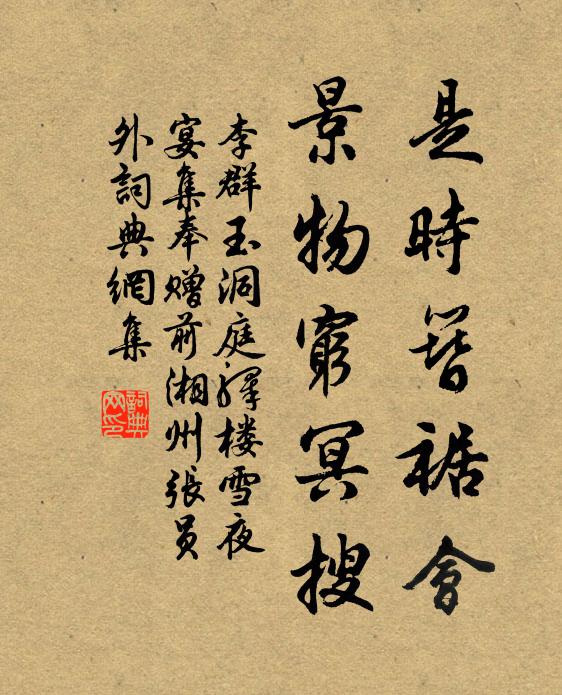 是時簪裾會
景物窮冥搜
李群玉洞庭驛楼雪夜
宴集奉赠前湘州張员
外詞典網集
詞典
网印